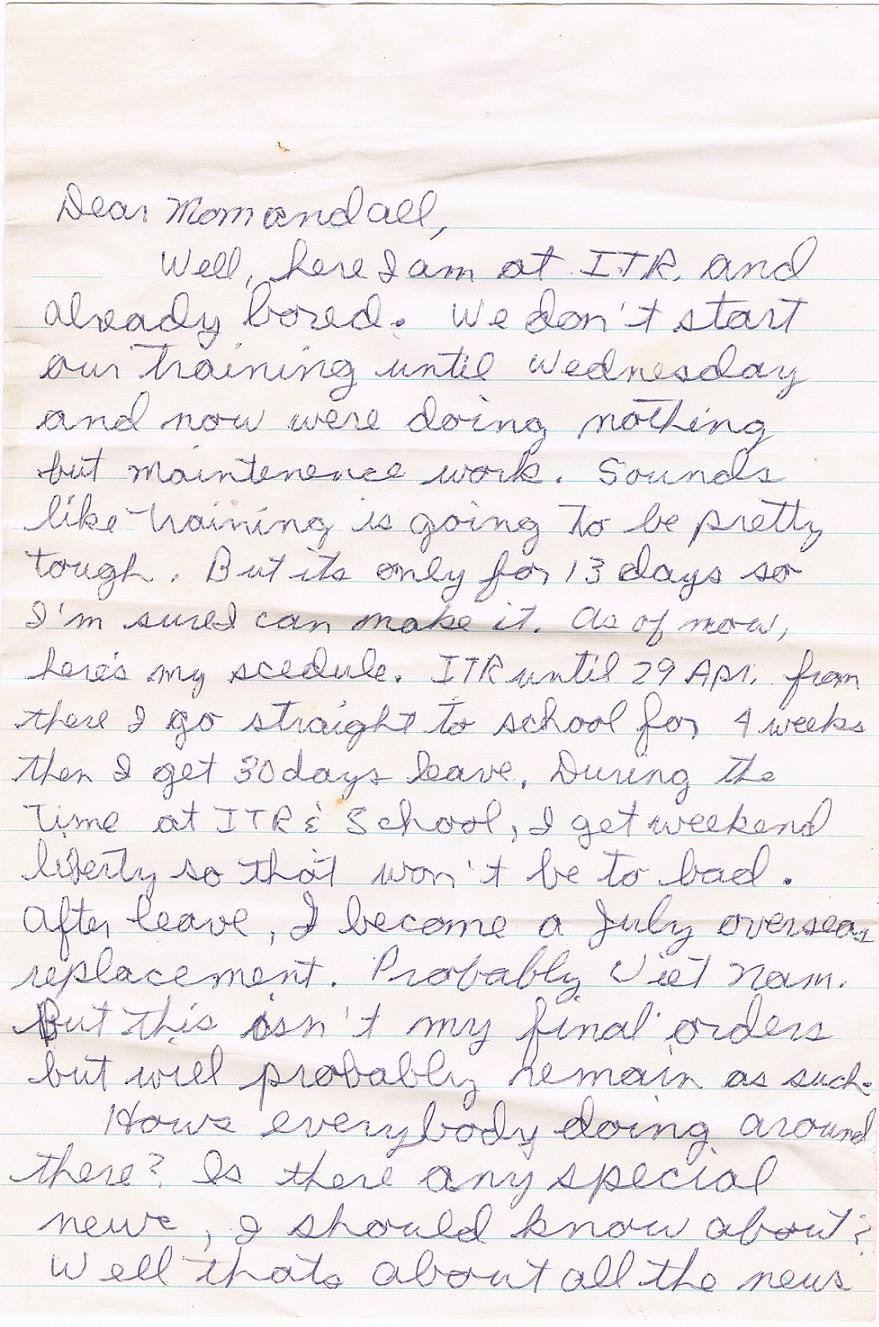 Dear Mom and all,
Well, here I am at ITR, and
already bored. We don't start
our training until Wednesday
and now were doing nothing
but maintenence work. Sounds
like training is going to be pretty
tough. But its only for 13 days so
I'm sure I can make it. As of now,
here's my scedule. ITR until 29 Apr. from
there I go straight to school for 4 weeks
then I get 30 days leave. During the
time at ITR & School, I get weekend
liberty so that won't be to bad.
After leave, I become a July overseas
replacement. Probably Viet Nam.
But this isn't my final orders
but will probably remain as such.
Hows everybody doing around
there? Is there any special
news, I should know about?
Well thats about all the news